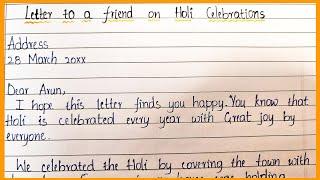 Letter to a friend on Holi Celebrations
Address
28 March 20xx
Dear Arun,
I hope this letter finds you happy. You know that
Holi is celebrated every year with Great joy by
everyone.
We celebrated the Holi by covering the town with